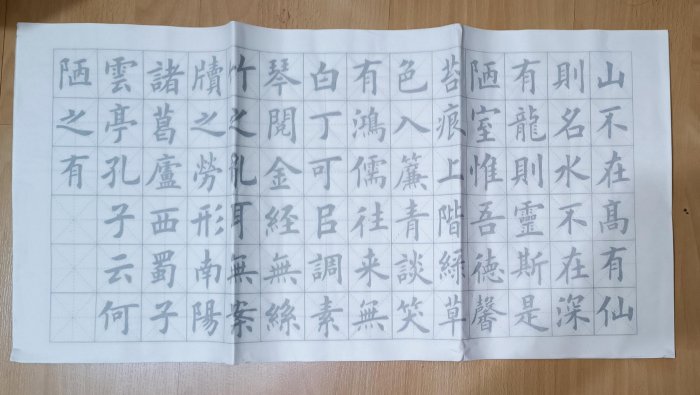 山不在髙有仙
則名水不在深
有龍則靈斯是
陋室惟吾德馨
苔痕上階綠草
色入簾青談笑
有鴻儒往来無
白丁可㠯調素
琴閱金經無絲
竹之亂耳無案
牘之勞形南陽
諸葛廬西蜀子
雲亭孔子云何
陋之有